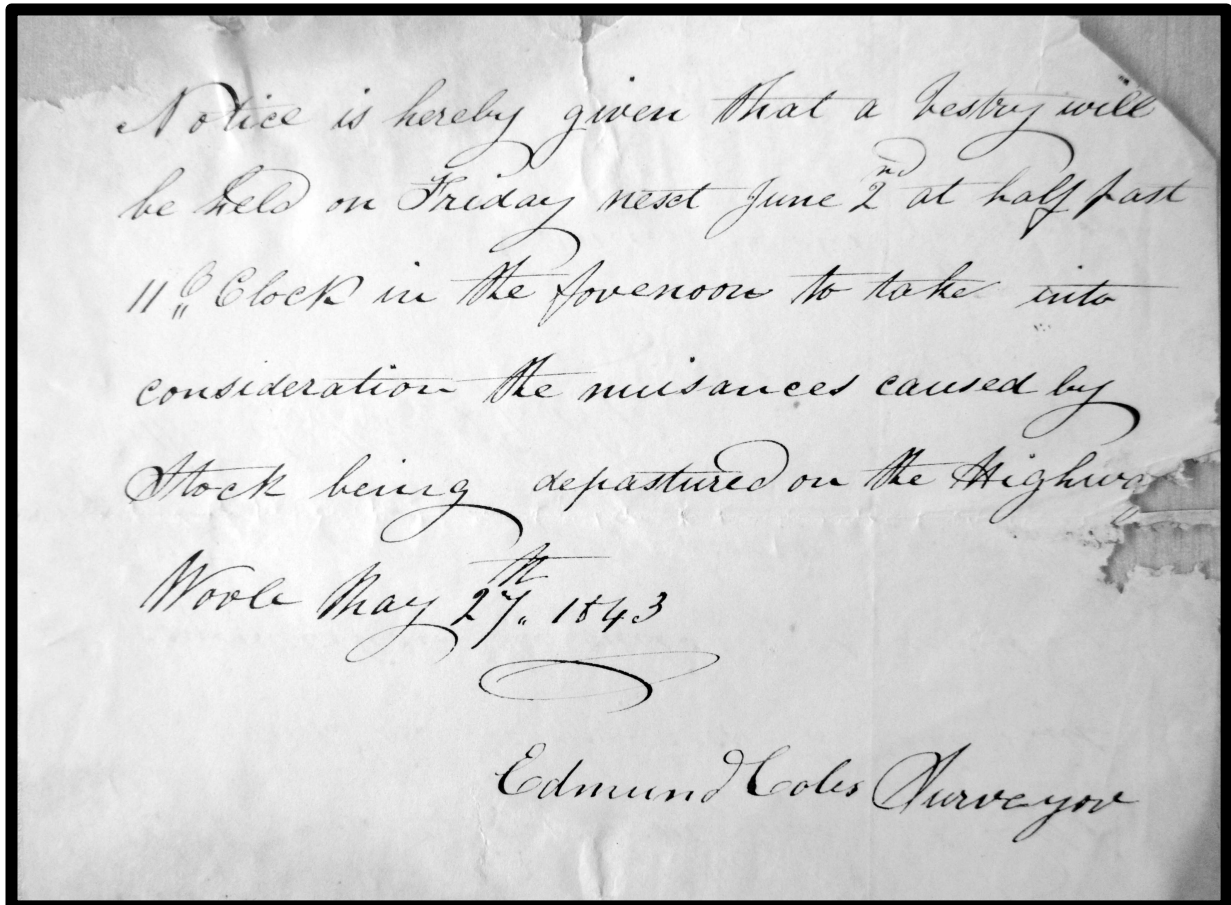 Notice is hereby given that a Vestry will
be held on Friday next June 2nd at half past
11 O Clock in the forenoon to take into
consideration the nuisances caused by
Stock being depastured on the Highwa
Woole May 27th 1843
Edmund Coles Surveyor